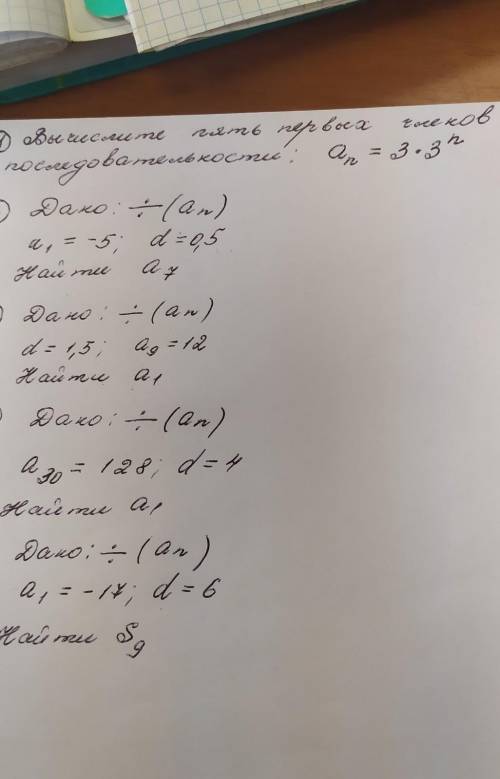 1) Вычислите пять первых членов
последовательности: aₙ = 3·3ⁿ
) Дано: ÷ (aₙ)
a₁ = -5; d = 0,5
Найти a₇
) Дано: ÷ (aₙ)
d = 1,5; a₉ = 12
Найти a₁
) Дано: ÷ (aₙ)
a₃₀ = 128; d = 4
Найти a₁
Дано: ÷ (aₙ)
a₁ = -17; d = 6
Найти S₉